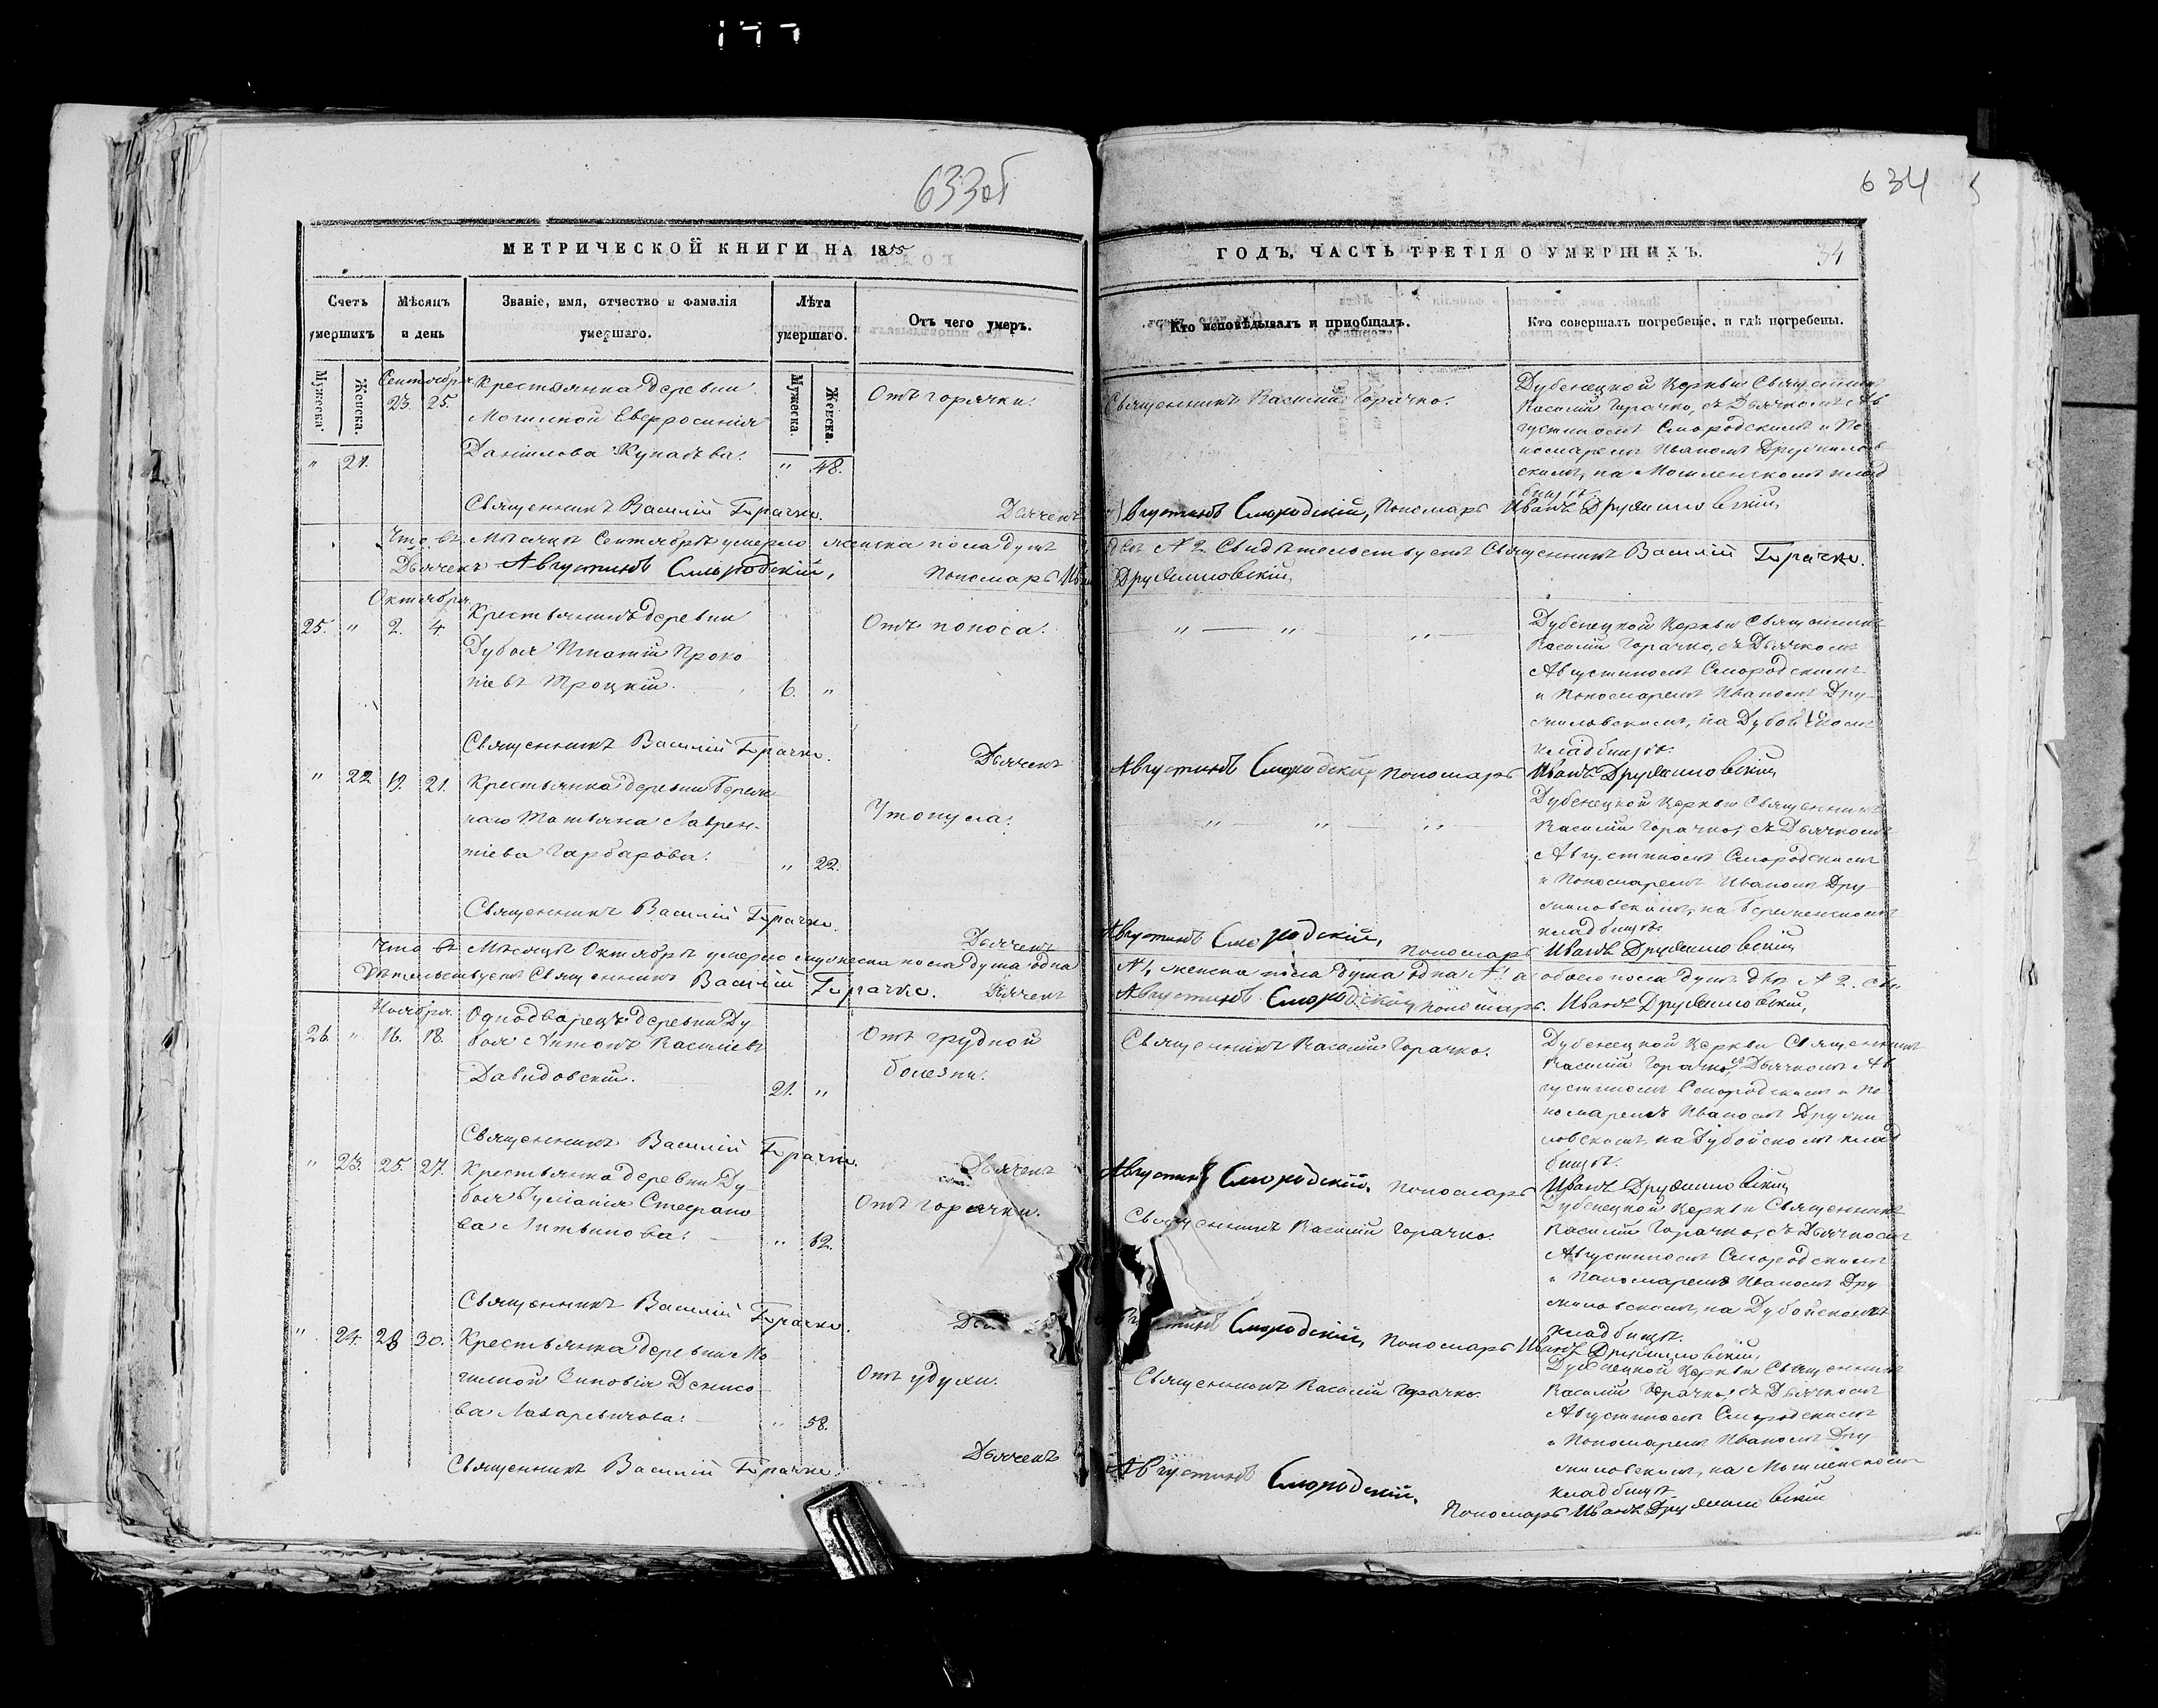 633об
634
МЕТРИЧЕСКОЙ КНИГИ НА 1855
ГОДЪ, ЧАСТЬ ТРЕТІЯ О УМЕРШИХЪ.
34
Счетъ умершихъ
Мѣсяцъ и день
Званіе, имя, отчество и фамилія умершаго.
Лѣта умершаго.
Отъ чего умеръ.
Кто исповѣдывалъ и приобщалъ.
Кто совершалъ погребеніе, и гдѣ погребены.
Мужеска.
Женска.
Мужеска.
Женска.
Сентября.
23. 25.
" 21.
Крестьянка деревни
Могилной Евфросинія
Даніилова
" 48.
Отъ горячки.
Священникъ Василій Горачко.
Дубенецкой Церкви Священникъ
Василій Горачко, съ Дьячкомъ Ав
густиномъ Смородскимъ и По
номаремъ Иваномъ Дружилов
скимъ, на Могиленскомъ клад
бищѣ.
Священникъ Василій Горачко. Дьячекъ Августинъ Смородскій, Пономарь Иванъ Дружиловскій,
Что въ Мѣсяцѣ Сентябрѣ умерло женска пола душъ двѣ № 2. Свидѣтельствуетъ Священникъ Василій Горачко.
Дьячекъ Августинъ Смородскій, Пономарь Иванъ Дружиловскій,
Октября.
25. " 2. 4.
Крестьянинъ деревни
Дубоя Игнатій Проко
піевъ Троцкій.
6. "
Отъ поноса.
" — " — "
Дубенецкой Церкви Священникъ
Василій Горачко, съ Дьячкомъ
Августиномъ Смородскимъ
и Пономаремъ Иваномъ Дру
жиловскимъ, на Дубойскомъ
кладбищѣ.
Священникъ Василій Горачко. Дьячекъ Августинъ Смородскій, Пономарь Иванъ Дружиловскій,
" 22 19. 21.
Крестьянка деревни Береж
наго Татьяна Лаврен-
тіева Гарбарова.
" 22.
Утонула.
" — " — "
Дубенецкой Церкви Священникъ
Василій Горачко, съ Дьячкомъ
Августиномъ Смородскимъ
и Пономаремъ Иваномъ Дру
жиловскимъ, на Бережненскомъ
кладбищѣ.
Священникъ Василій Горачко. Дьячекъ Августинъ Смородскій, Пономарь Иванъ Дружиловскій,
Что въ Мѣсяцѣ Октябрѣ умерло мужеска пола душа одна № 1, женска пола душа одна № 1. а обоего пола душъ двѣ № 2. Сви
дѣтельствуетъ Священникъ Василій Горачко. Дьячекъ Августинъ Смородскій, Пономарь. Иванъ Дружиловскій,
Ноября.
26. " 16. 18.
Однодворецъ деревни Ду
боя Антонъ Васильевъ
Давидовскій.
21. "
Отъ грудной
болезни.
Священникъ Василій Горачко.
Дубенецкой Церкви Священникъ
Василій Горачко, съ Дьячкомъ Ав
густиномъ Смородскимъ и По
номаремъ Иваномъ Дружи
ловскимъ, на Дубойскомъ клад
бищѣ.
Священникъ Василій Горачко. Дьячекъ Августинъ Смородскій, Пономарь Иванъ Дружиловскій,
" 23. 25. 27.
Крестьянка деревни Ду-
боя Іуліанія Стефано
ва Литвинова.
" 12.
Отъ горячки.
Священникъ Василій Горачко.
Дубенецкой Церкви Священникъ
Василій Горачко, съ Дьячкомъ
Августиномъ Смородскимъ
и Пономаремъ Иваномъ Дру
жиловскимъ, на Дубойскомъ
кладбищѣ.
Священникъ Василій Горачко. Смородскій, Пономарь Иванъ Дружиловскій,
" 24. 28 30.
Крестьянка деревни Мо
гилной Зиновія Денисо
ва Лазаревичова.
" 58.
Отъ удухи.
Священникъ Василій Горачко.
Дубенецкой Церкви Священникъ
Василій Горачко, съ Дьячкомъ
Августиномъ Смородскимъ
и Пономаремъ Иваномъ Дру
жиловскимъ, на Могиленскомъ
кладбищѣ
Священникъ Василій Горачко. Дьячекъ Августинъ Смородскій, Пономарь Иванъ Дружиловскій